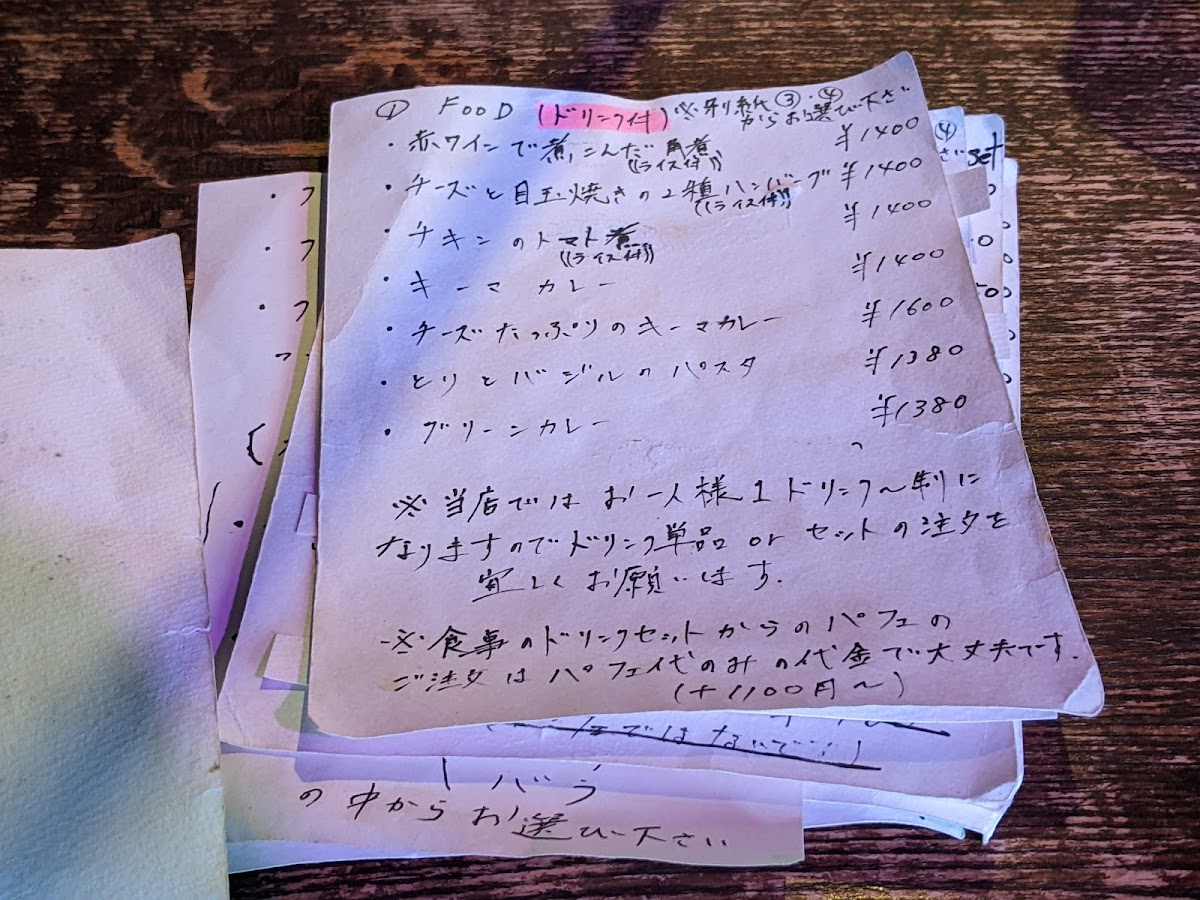 ① FOOD (ドリンク付) ※別紙③・④
からお選び下さい
・赤ワインで煮こんだ角煮 ¥1400
((ライス付))
・チーズと目玉焼きの2種ハンバーグ ¥1400
((ライス付))
・チキンのトマト煮 ¥1400
((ライス付))
・キーマカレー ¥1400
・チーズたっぷりのキーマカレー ¥1600
・とりとバジルのパスタ ¥1380
・グリーンカレー ¥1380
※当店ではお一人様1ドリンク〜制に
なりますのでドリンク単品orセットの注文を
宜しくお願いします.
※食事のドリンクセットからのパフェの
ご注文はパフェ代のみの代金で大丈夫です.
(+1100円〜)
④
set
ではないです
の中からお選び下さい